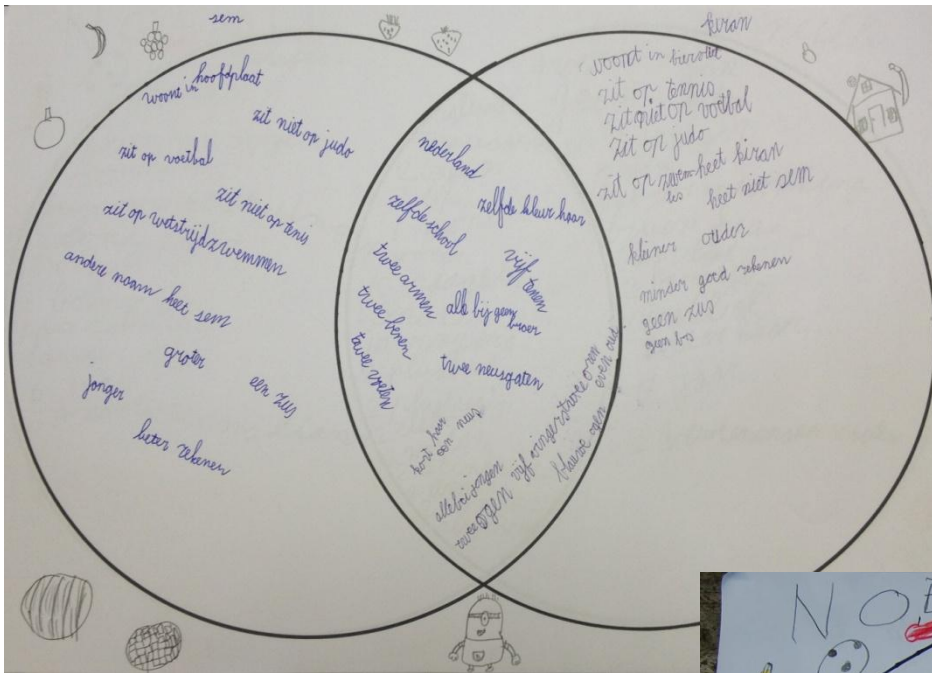 sem
woont in hoofdplaat
zit niet op judo
zit op voetbal
zit niet op tenis
zit op wetstrijdzwemmen
andere naam heet sem
groter
jonger
een zus
beter rekenen
nederland
zelfde kleur haar
zelfde school
vijf tenen
twee armen
alle bij geen
broer
twee benen
twee neusgaten
twee voeten
kort haar
een neus
allebei jongen
twee ogen vijf vingers twee oren
blauwe ogen even oud
kiran
woont in biervliet
zit op tennis
zit niet op voetbal
zit op judo
zit op zwem
les
heet kiran
heet niet sem
kleiner ouder
minder goed rekenen
geen zus
NO